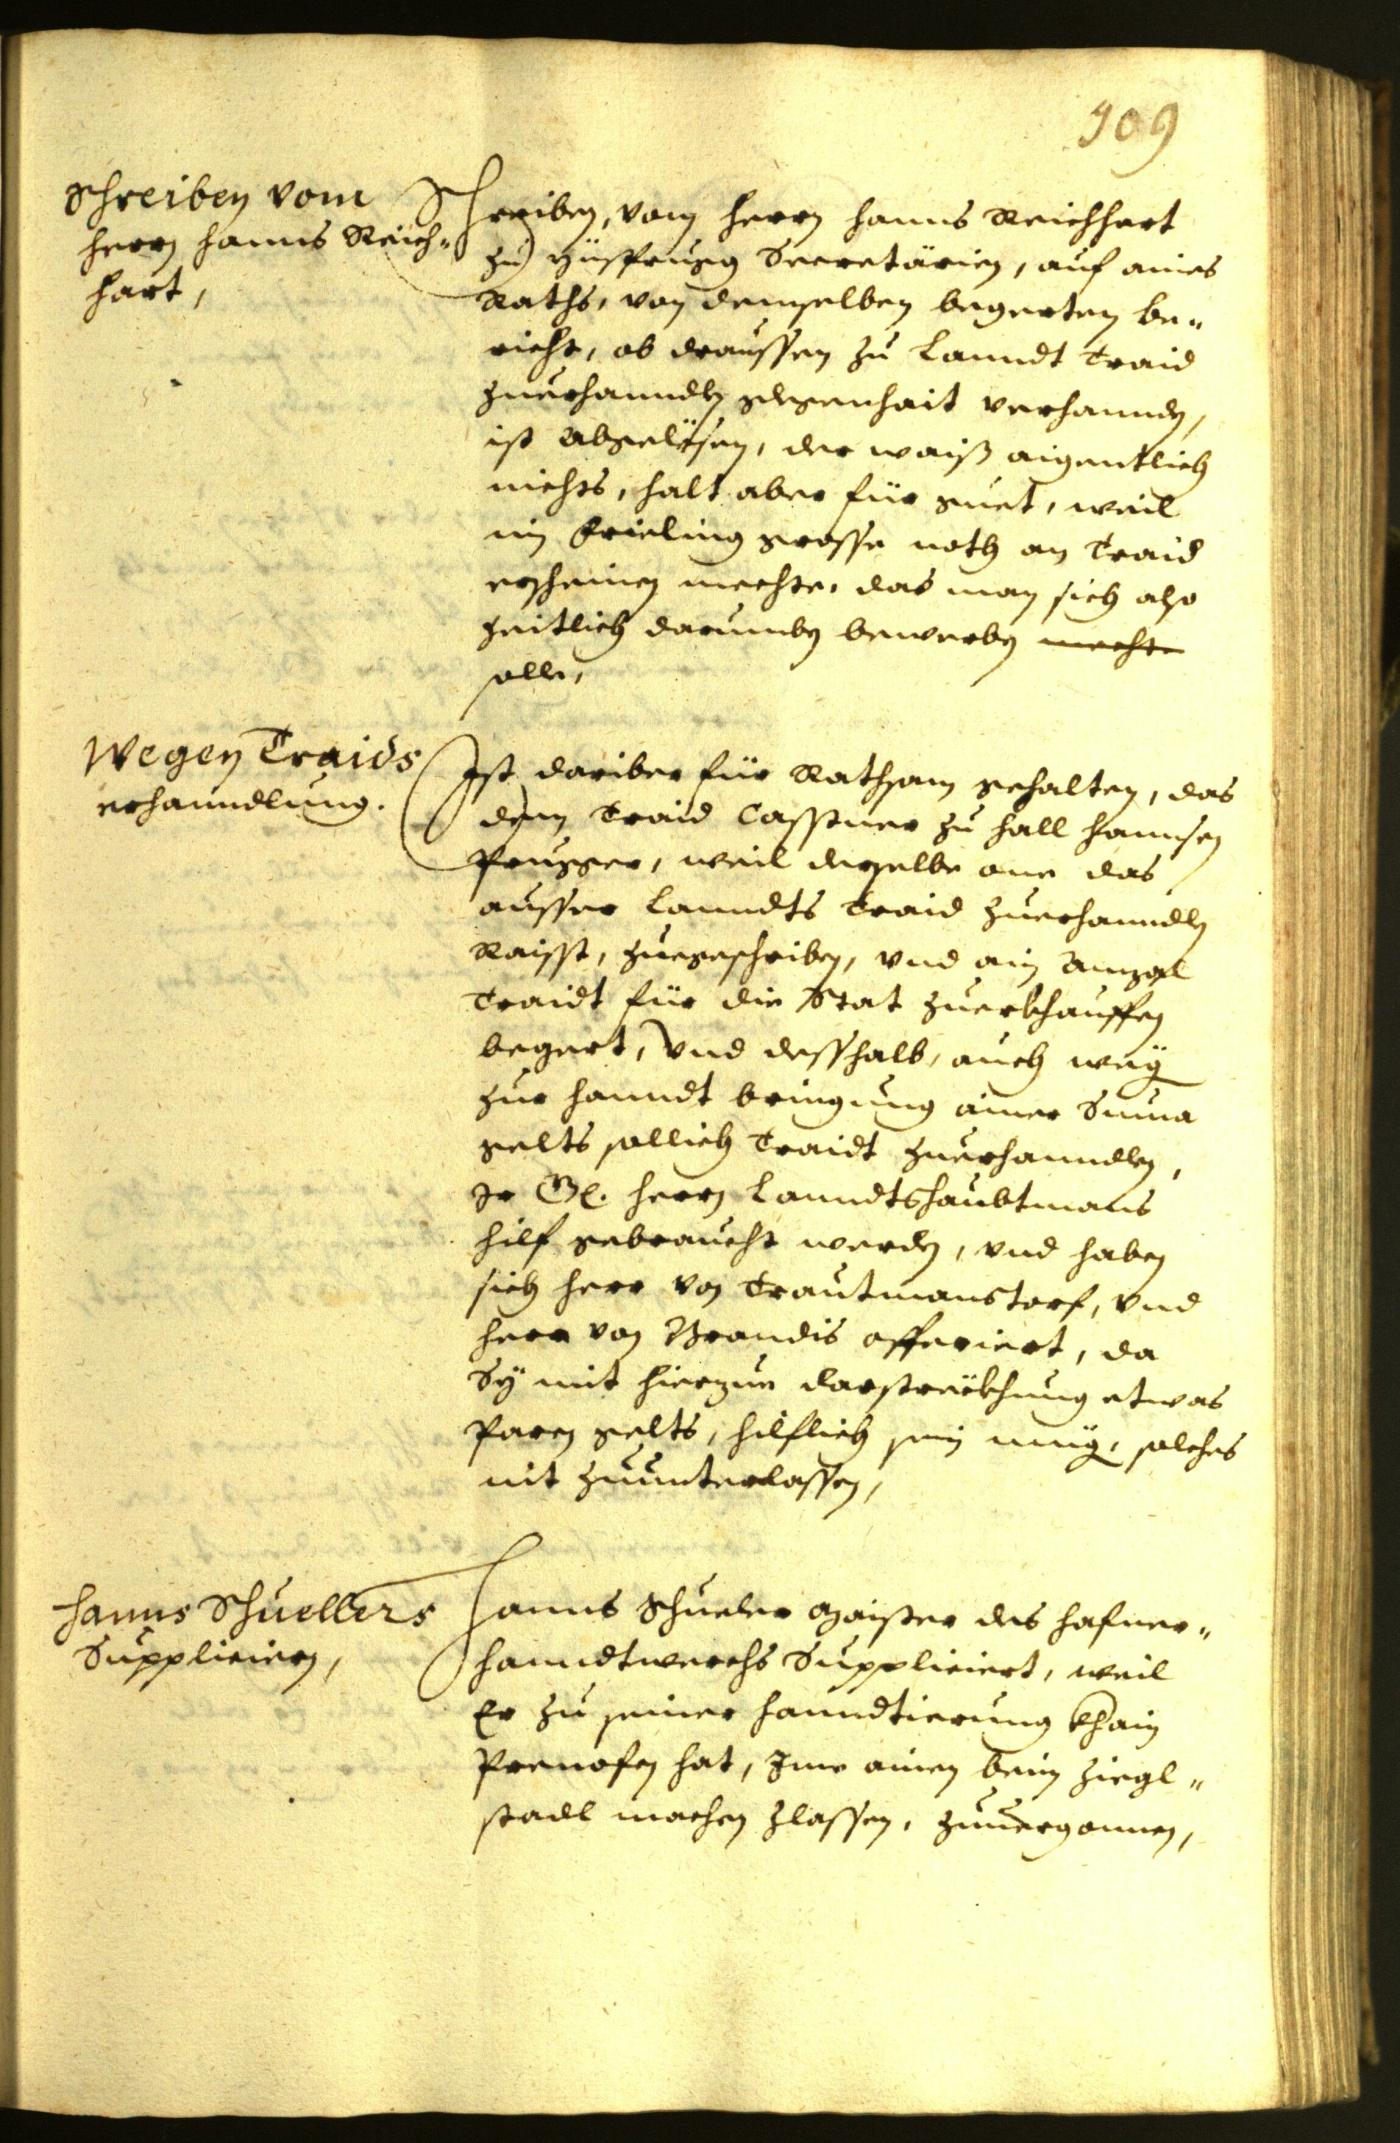 109
Schreiben vom
herrn Hanns Reich-
hart,
Schreiben, vom herrn Hanns Reichhart
zu Secretärien, auf aines
Raths, von demselben begerten be-
richt, ob draussen zu Lanndt Traid
zuerhanndln glegenhait verhannden,
ist abgelesen, der waiß aigentlich
nichts, halt aber für guet, weil
im Frieling grosse noth an Traid
erscheinen mechte, das man sich also
zeitlich darumben bewerben mechte
solle,
Wegen Traids
erhanndlung.
Ist dariber für Rathsam gehalten, das
dem Traid Casstner zu Hall Hannsen
Prugger, weil derselbe one das
ausser Lanndts Traid zuerhanndlen
Raisst, zuegeschriben, vnd ain Anzal
Traidt für die Stat zuerkhauffen
begert, vnd desshalb, auch weg
zur hanndt bringung ainer Suma
gelts sollich Traidt zuerhanndlen,
Ir Gl. herrn Lanndtshaubtmans
hilf gebraucht werden, vnd haben
sich herr von Trautmanstorf, vnd
herr von Brandis offeriert, da
Sy mit hierzue darstreckhung etwas
Paren gelts, hilflich sein müg, solches
nit zuunterlassen,
Hanns Schuellers
Supplicieren,
Hanns Schueler Maister des Hafner-
hanndtwerchs Suppliciert, weil
Er zu seiner hanndtierung khain
Prenofen hat, Ime ainen beim Ziegl-
stadl machen zlassen, zuuergonnen,